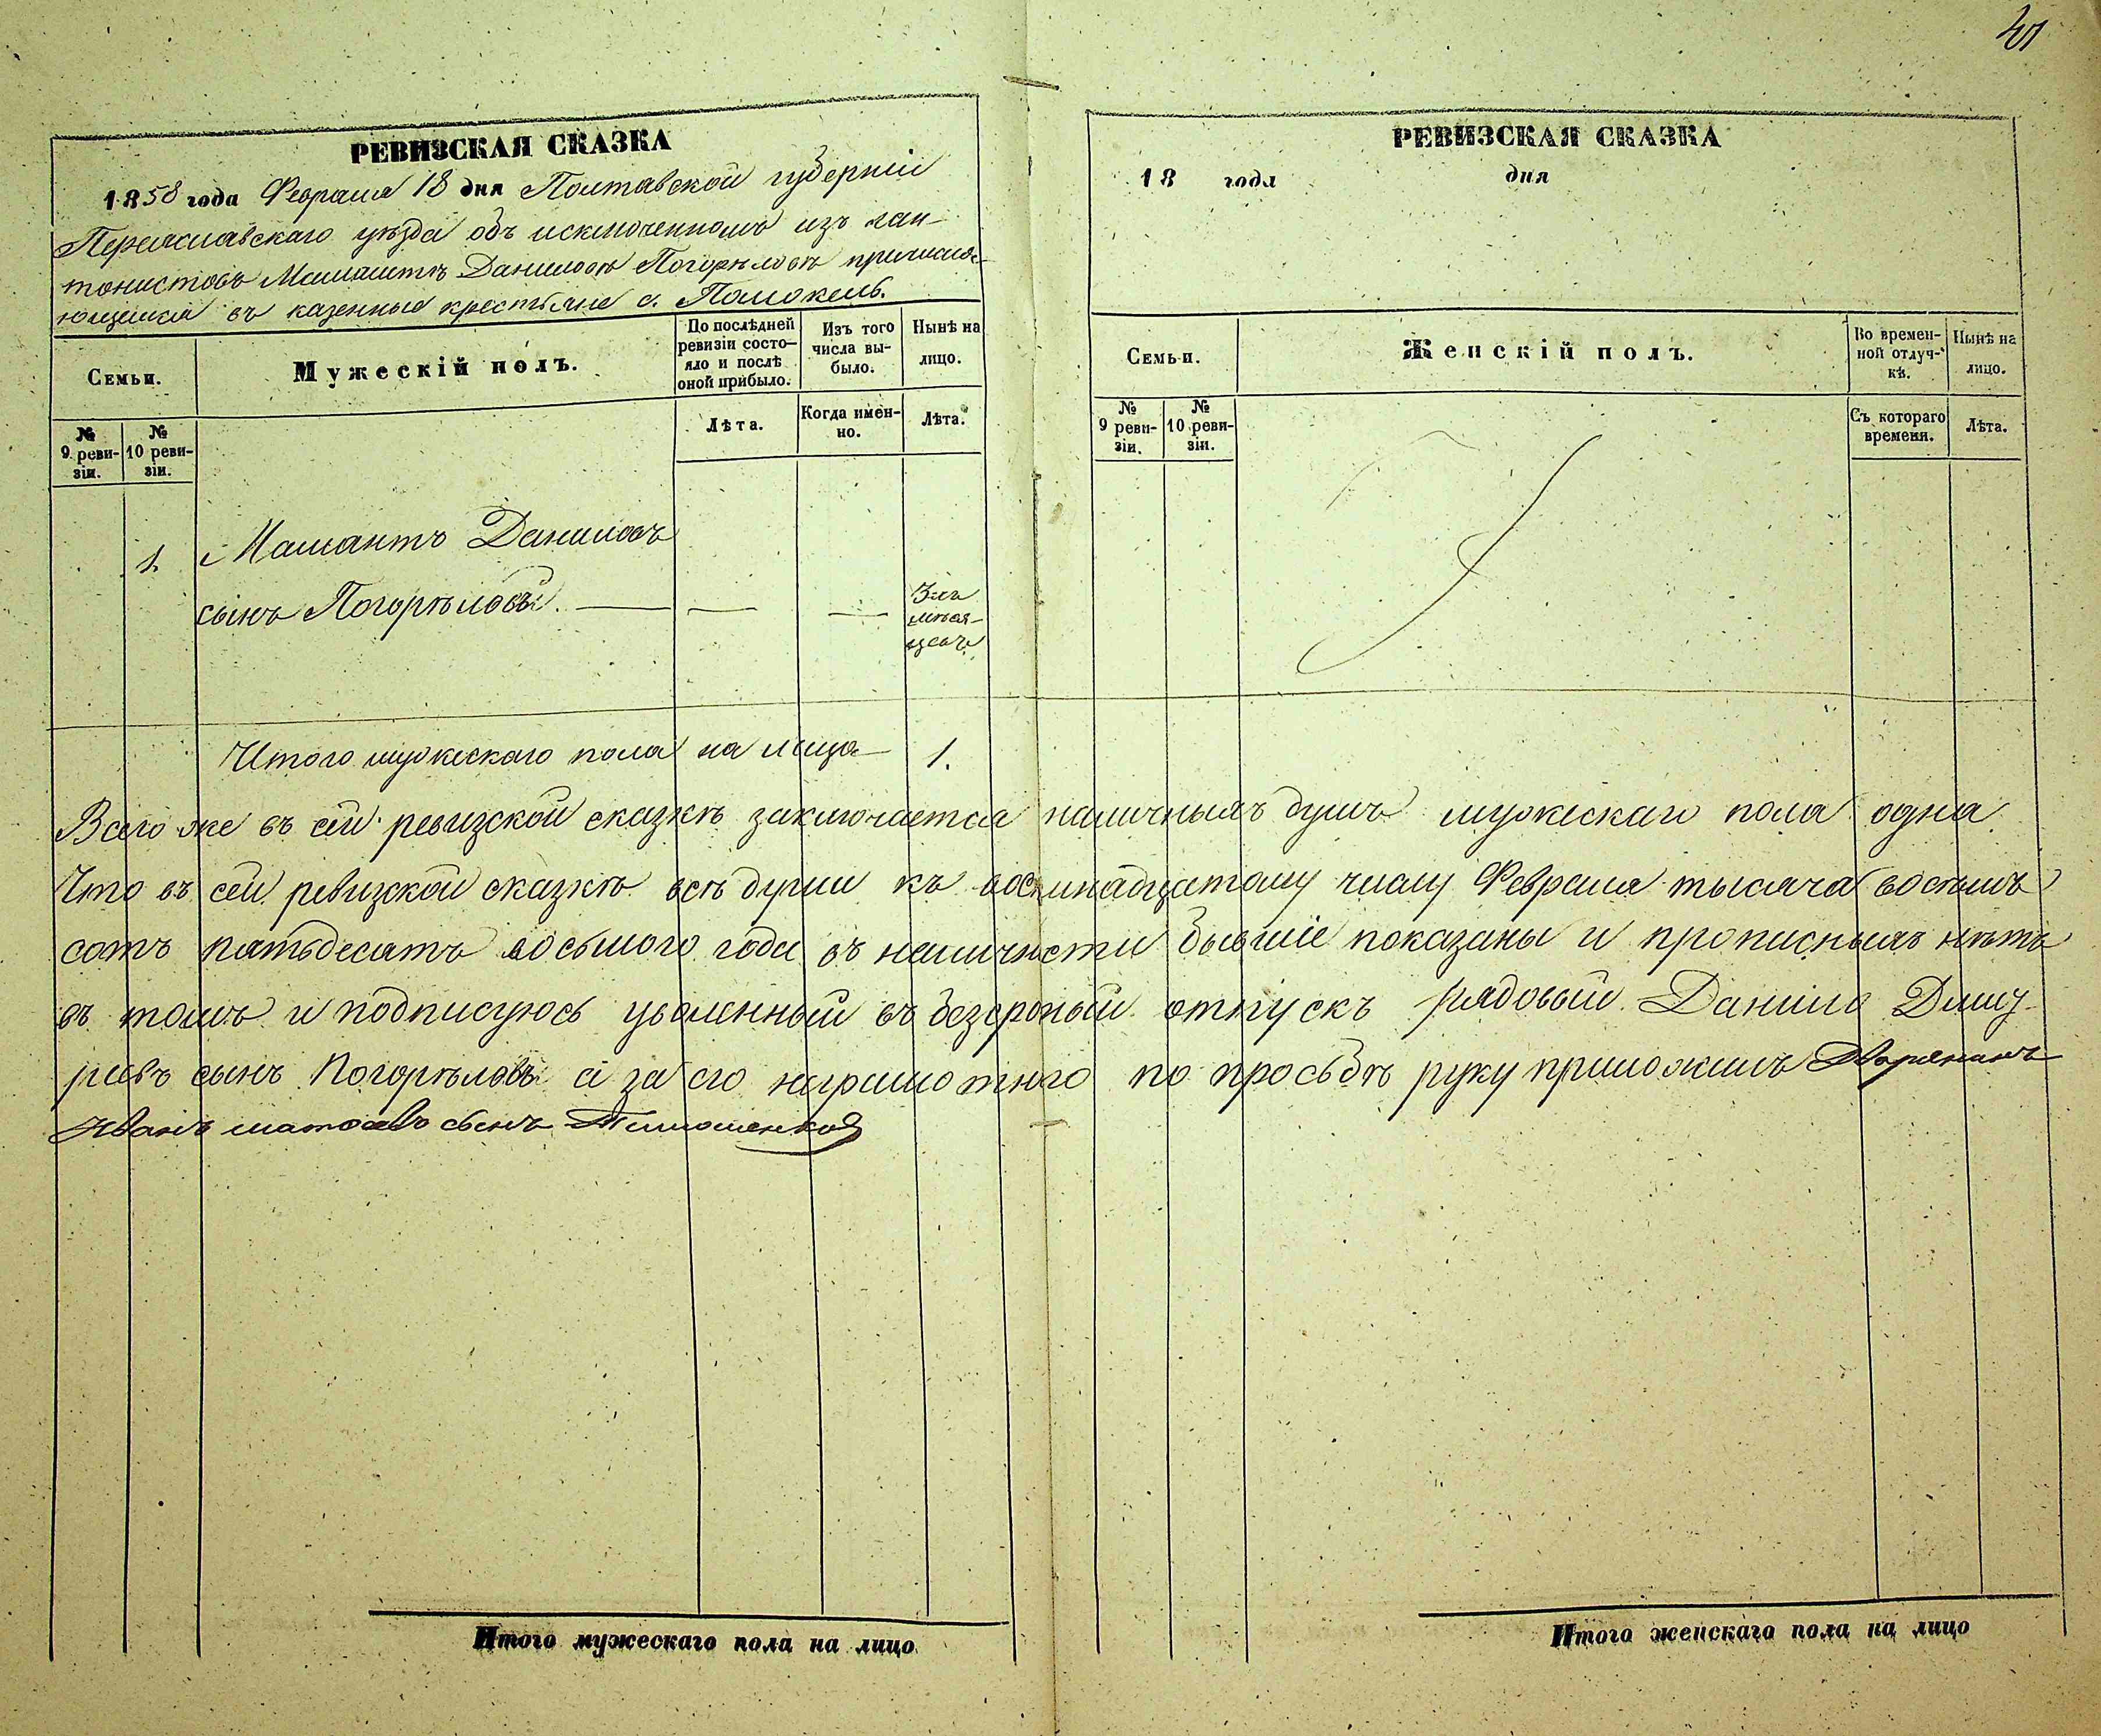 РЕВИЗСКАЯ СКАЗКА
1858 года Февраля 18 дня Полтавской губерніи
Переяславскаго уѣзда объ исключенномъ изъ кан-
тонистовъ Даниловѣ Погорѣловѣ причисля-
ющемся въ казенные крестьяне с. Помокель.
Семьи.
Мужескій полъ.
По послѣдней ревизіи состо-яло и послѣ оной прибыло.
Изъ того числа вы-было.
Нынѣ на лицо.
№ 9 реви-зіи.
№ 10 реви-зіи.
Лѣта.
Когда имен-но.
Лѣта.
1. Даниловъ
сынъ Погорѣловъ. — — —
мѣся-
цевъ
Итого мужескаго пола на лицо 1.
РЕВИЗСКАЯ СКАЗКА
18 года дня
Семьи.
Женскій полъ.
Во времен-ной отлуч-кѣ.
Нынѣ на лицо.
№ 9 реви-зіи.
№ 10 реви-зіи.
Съ котораго времени.
Лѣта.
Всего же въ сей ревизской сказкѣ заключается наличныхъ душъ мужескаго пола одна
Что въ сей ревизской сказкѣ всѣ души къ восмнадцатому числу Февраля тысяча восемь
сотъ пятьдесятъ восьмого года въ наличности бывшіе показаны и прописныхъ нѣтъ
въ томъ и подписуюсь уволенный въ безсрочный отпускъ рядовый Данило
сынъ Погорѣловъ а за его неграмотнаго по прозьбѣ руку приложилъ Дворянинъ
Иванъ сынъ Тимошенковъ
Итого мужескаго пола на лицо
Итого женскаго пола на лицо